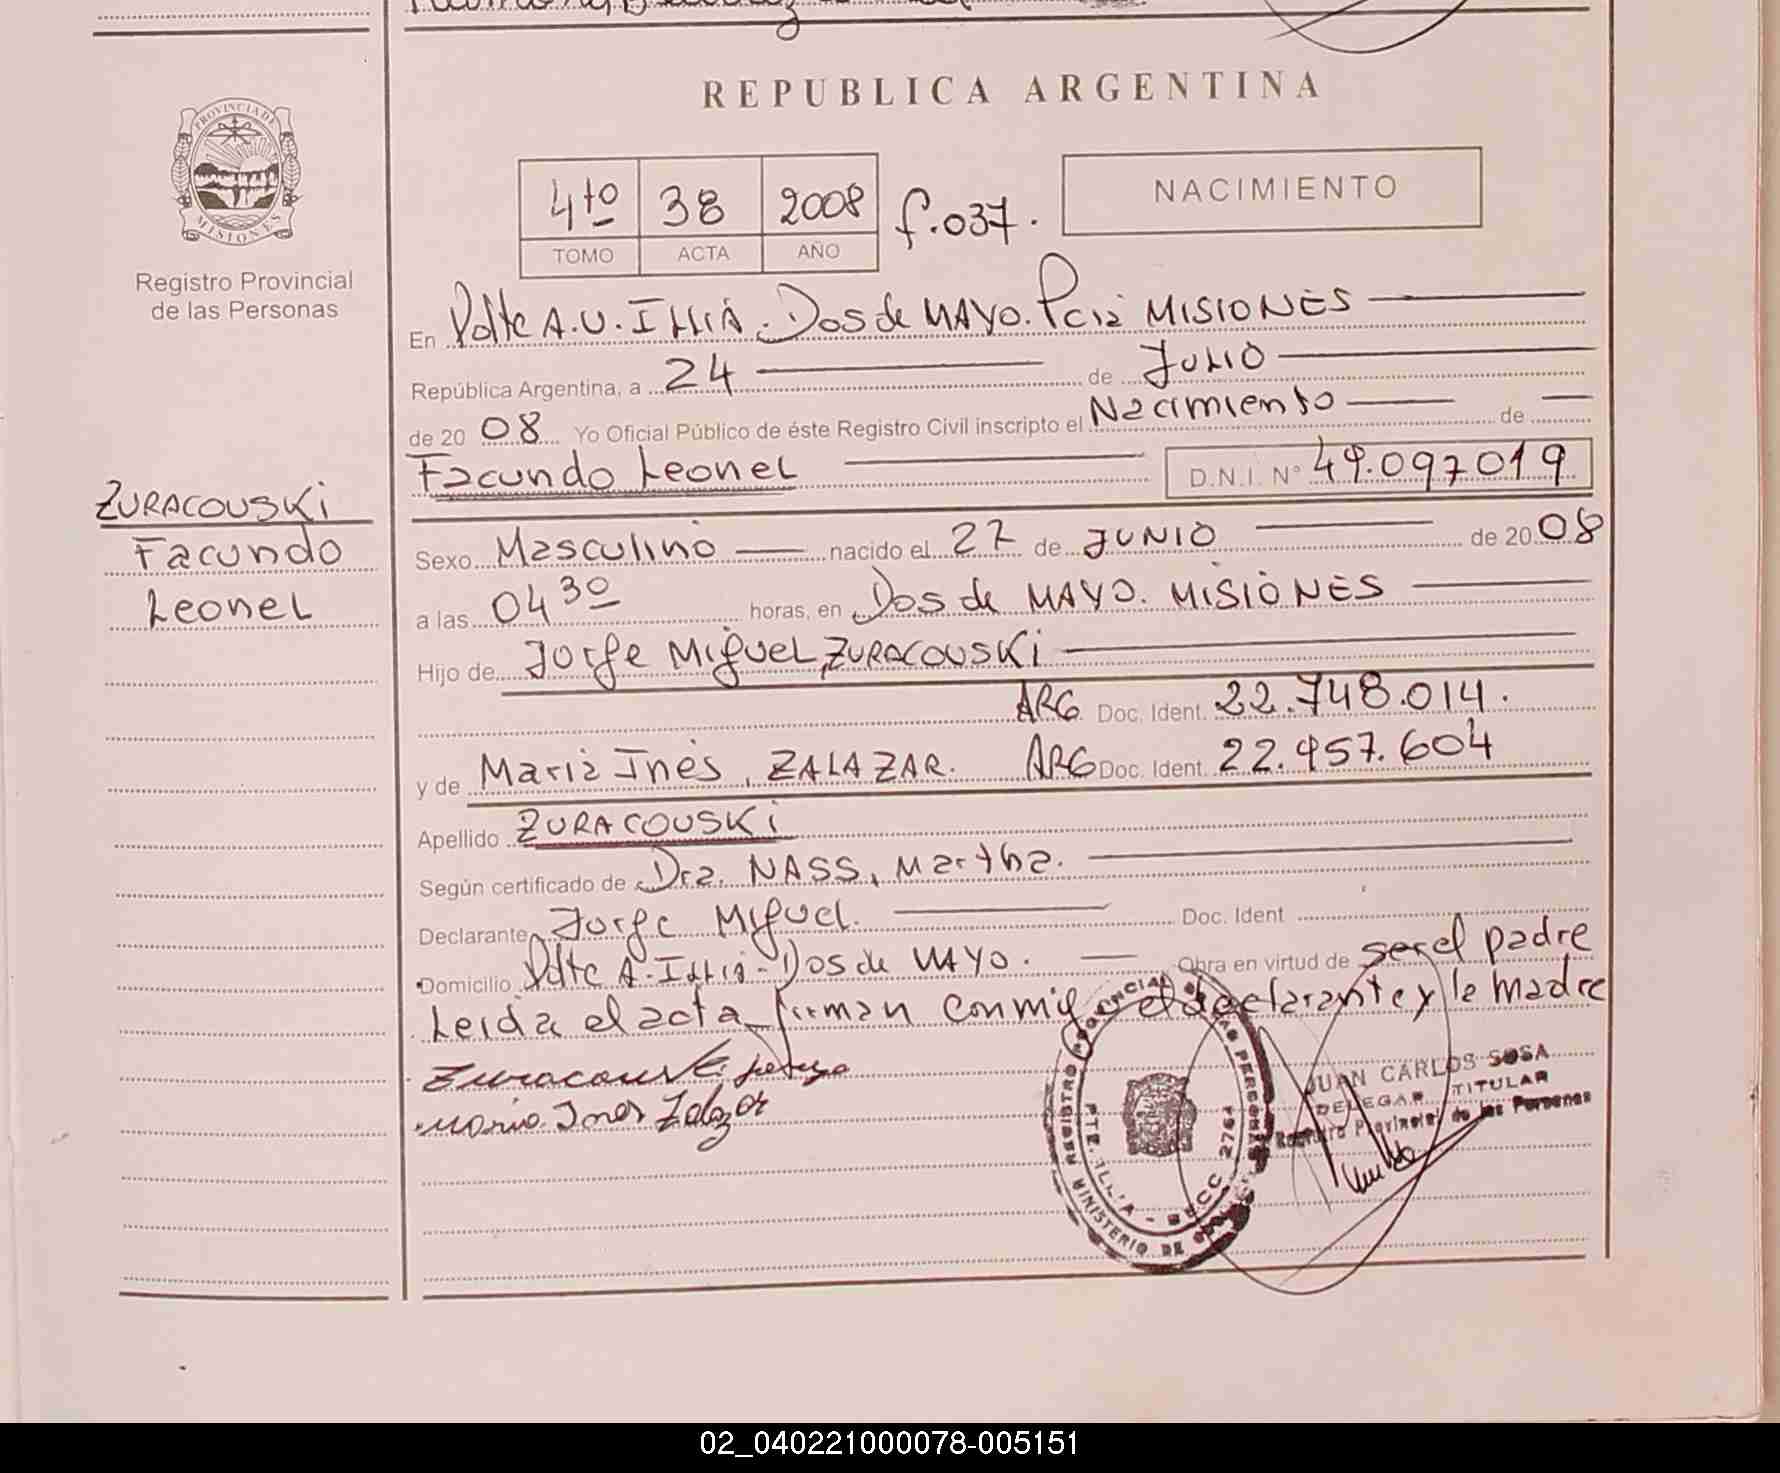 REPUBLICA ARGENTINA
PROVINCIA DE
MISIONES
Registro Provincial
de las Personas
4to 38 2008 f.037.
TOMO ACTA AÑO
NACIMIENTO
En Pdte A.U. ILLIA. Dos de MAYO. Pcia MISIONES
República Argentina, a 24 de JULIO
de 20 08 Yo Oficial Público de éste Registro Civil inscripto el Nacimiento de
Facundo Leonel D.N.I. N° 49.097019
ZURACOUSKI
Facundo
Leonel
Sexo Masculino nacido el 27 de JUNIO de 20 08
a las 04 30 horas, en Dos de MAYO. MISIONES
Hijo de Jorge Miguel, ZURACOUSKI
ARG Doc. Ident. 22.748.014.
y de Maria Inés, ZALAZAR. ARG Doc. Ident. 22.957.604
Apellido ZURACOUSKI
Según certificado de Dra. NASS, Martha.
Declarante Jorge Miguel. Doc. Ident
Domicilio Pdte A. ILLIA - Dos de MAYO. Obra en virtud de ser el padre
Leida el acta firman conmigo el declarante y la madre
Zuracouski
Maria Ines Zalazar
REGISTRO PROVINCIAL DE LAS PERSONAS
PTE. ILLIA - 2761
MINISTERIO DE
JUAN CARLOS SOSA
DELEGAD TITULAR
Registro Provincial de las Personas
02_040221000078-005151